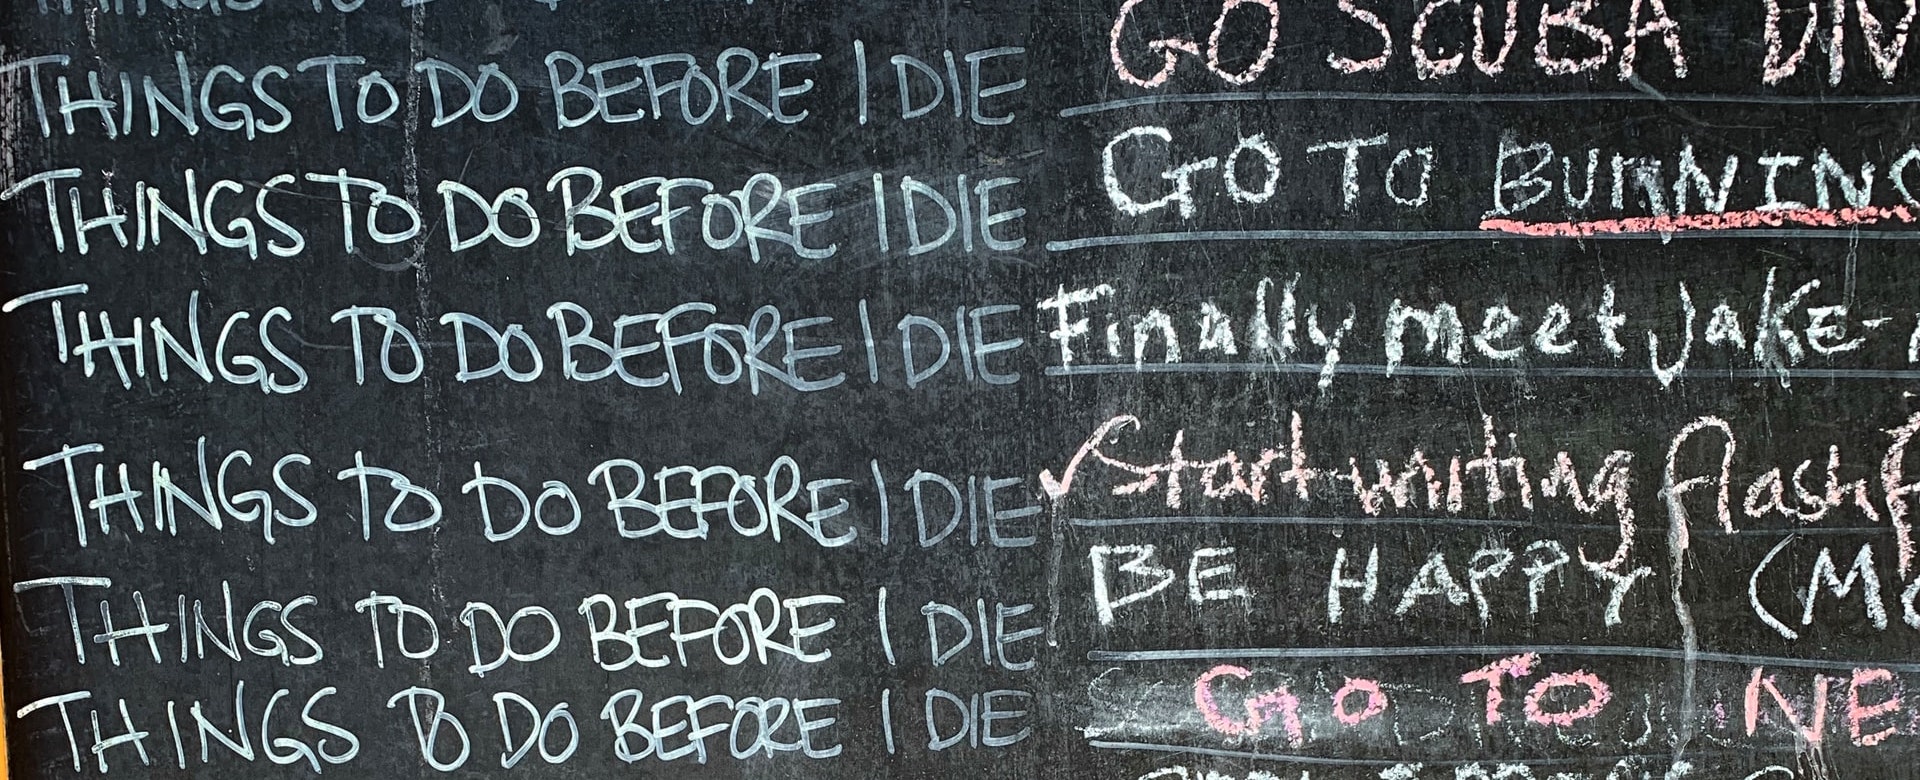 THINGS TO DO
THINGS TO DO BEFORE I DIE GO SCUBA DIV
THINGS TO DO BEFORE I DIE GO TO BURNING
THINGS TO DO BEFORE I DIE Finally meet JAKE-
THINGS TO DO BEFORE I DIE Start writing flash f
THINGS TO DO BEFORE I DIE BE HAPPY (MO
THINGS TO DO BEFORE I DIE GO TO NE